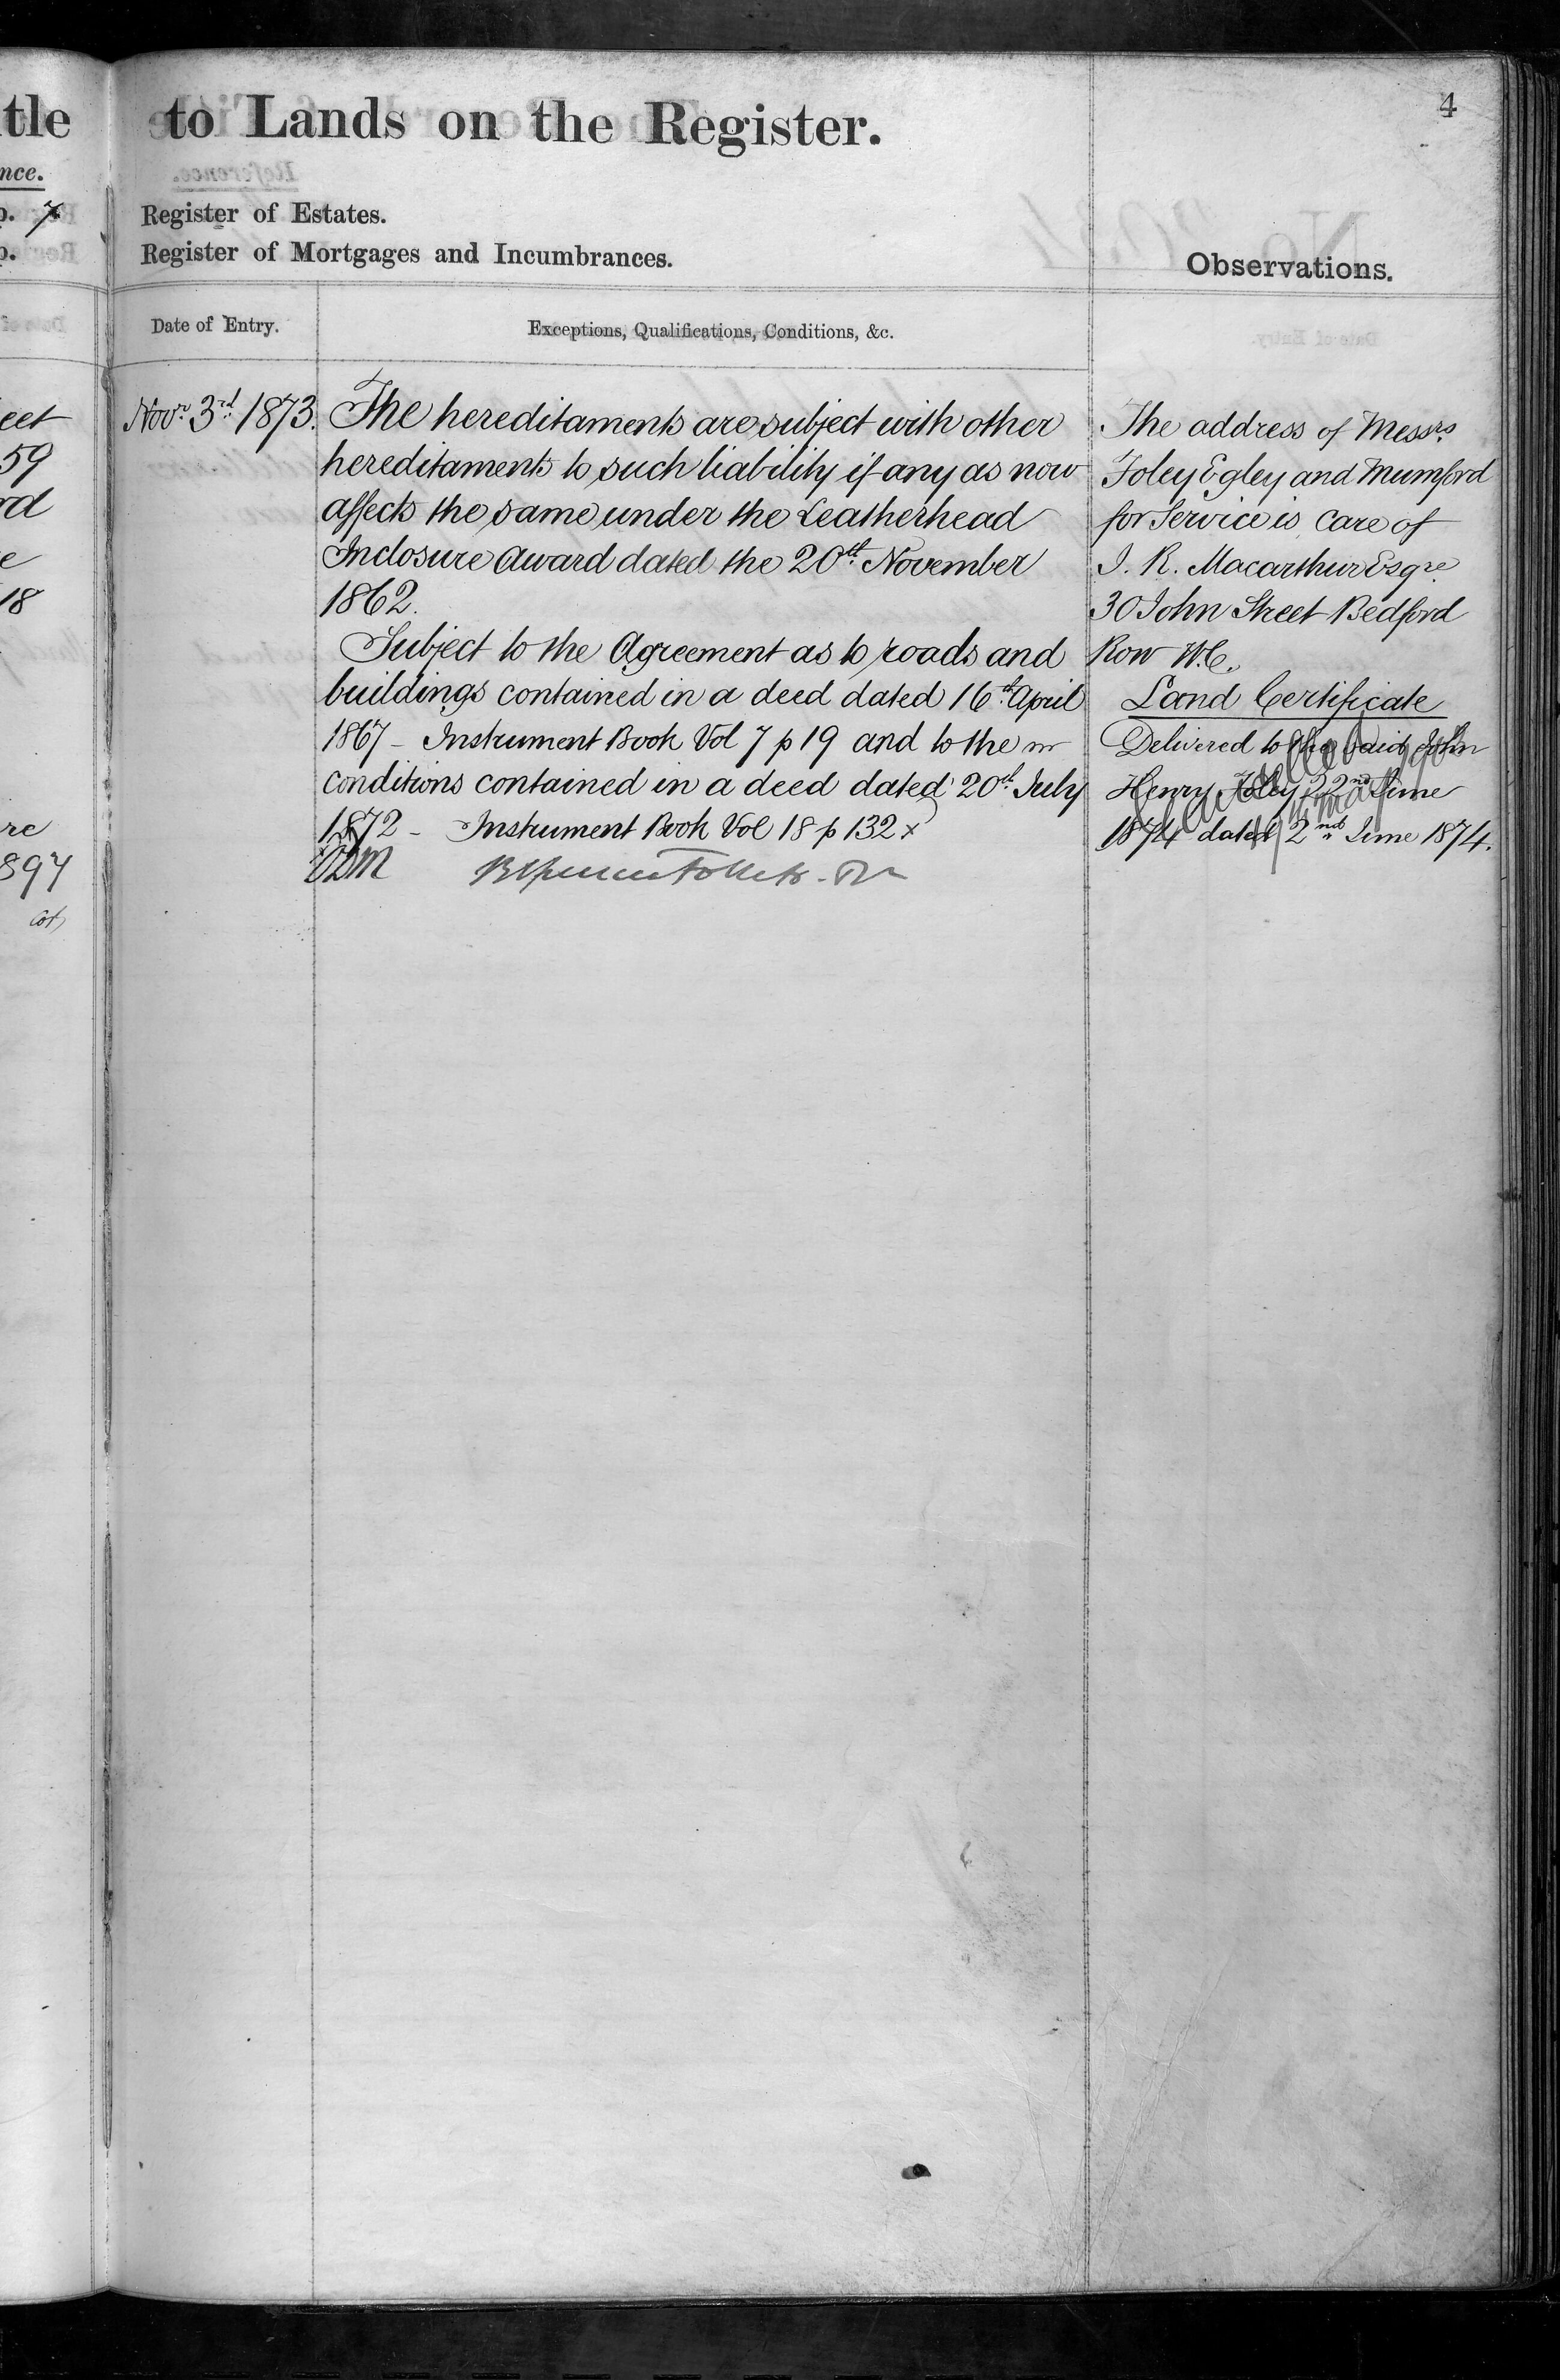 tle to Lands on the Register.
4
nce.
p. 7 Register of Estates.
p. Register of Mortgages and Incumbrances.
Observations.
Date of Entry.
Exceptions, Qualifications, Conditions, &c.
Novr. 3rd. 1873.
The hereditaments are subject with other
hereditaments to such liability if any as now
affects the same under the Leatherhead
Inclosure Award dated the 20th. November
1862.
Subject to the Agreement as to roads and
buildings contained in a deed dated 16th. April
1867 - Instrument Book Vol 7 p 19 and to the
conditions contained in a deed dated 20th July
1872 - Instrument Book Vol 18 p 132 x
The address of Messrs.
Foley Egley and Mumford
for Service is care of
J. R. Macarthur Esqre.
30 John Street Bedford
Row W.C.
Land Certificate
Delivered to the said John
Henry Foley 22nd June
1874 dated 2nd June 1874.
Cancelled
eet
59
rd
e
18
re
897